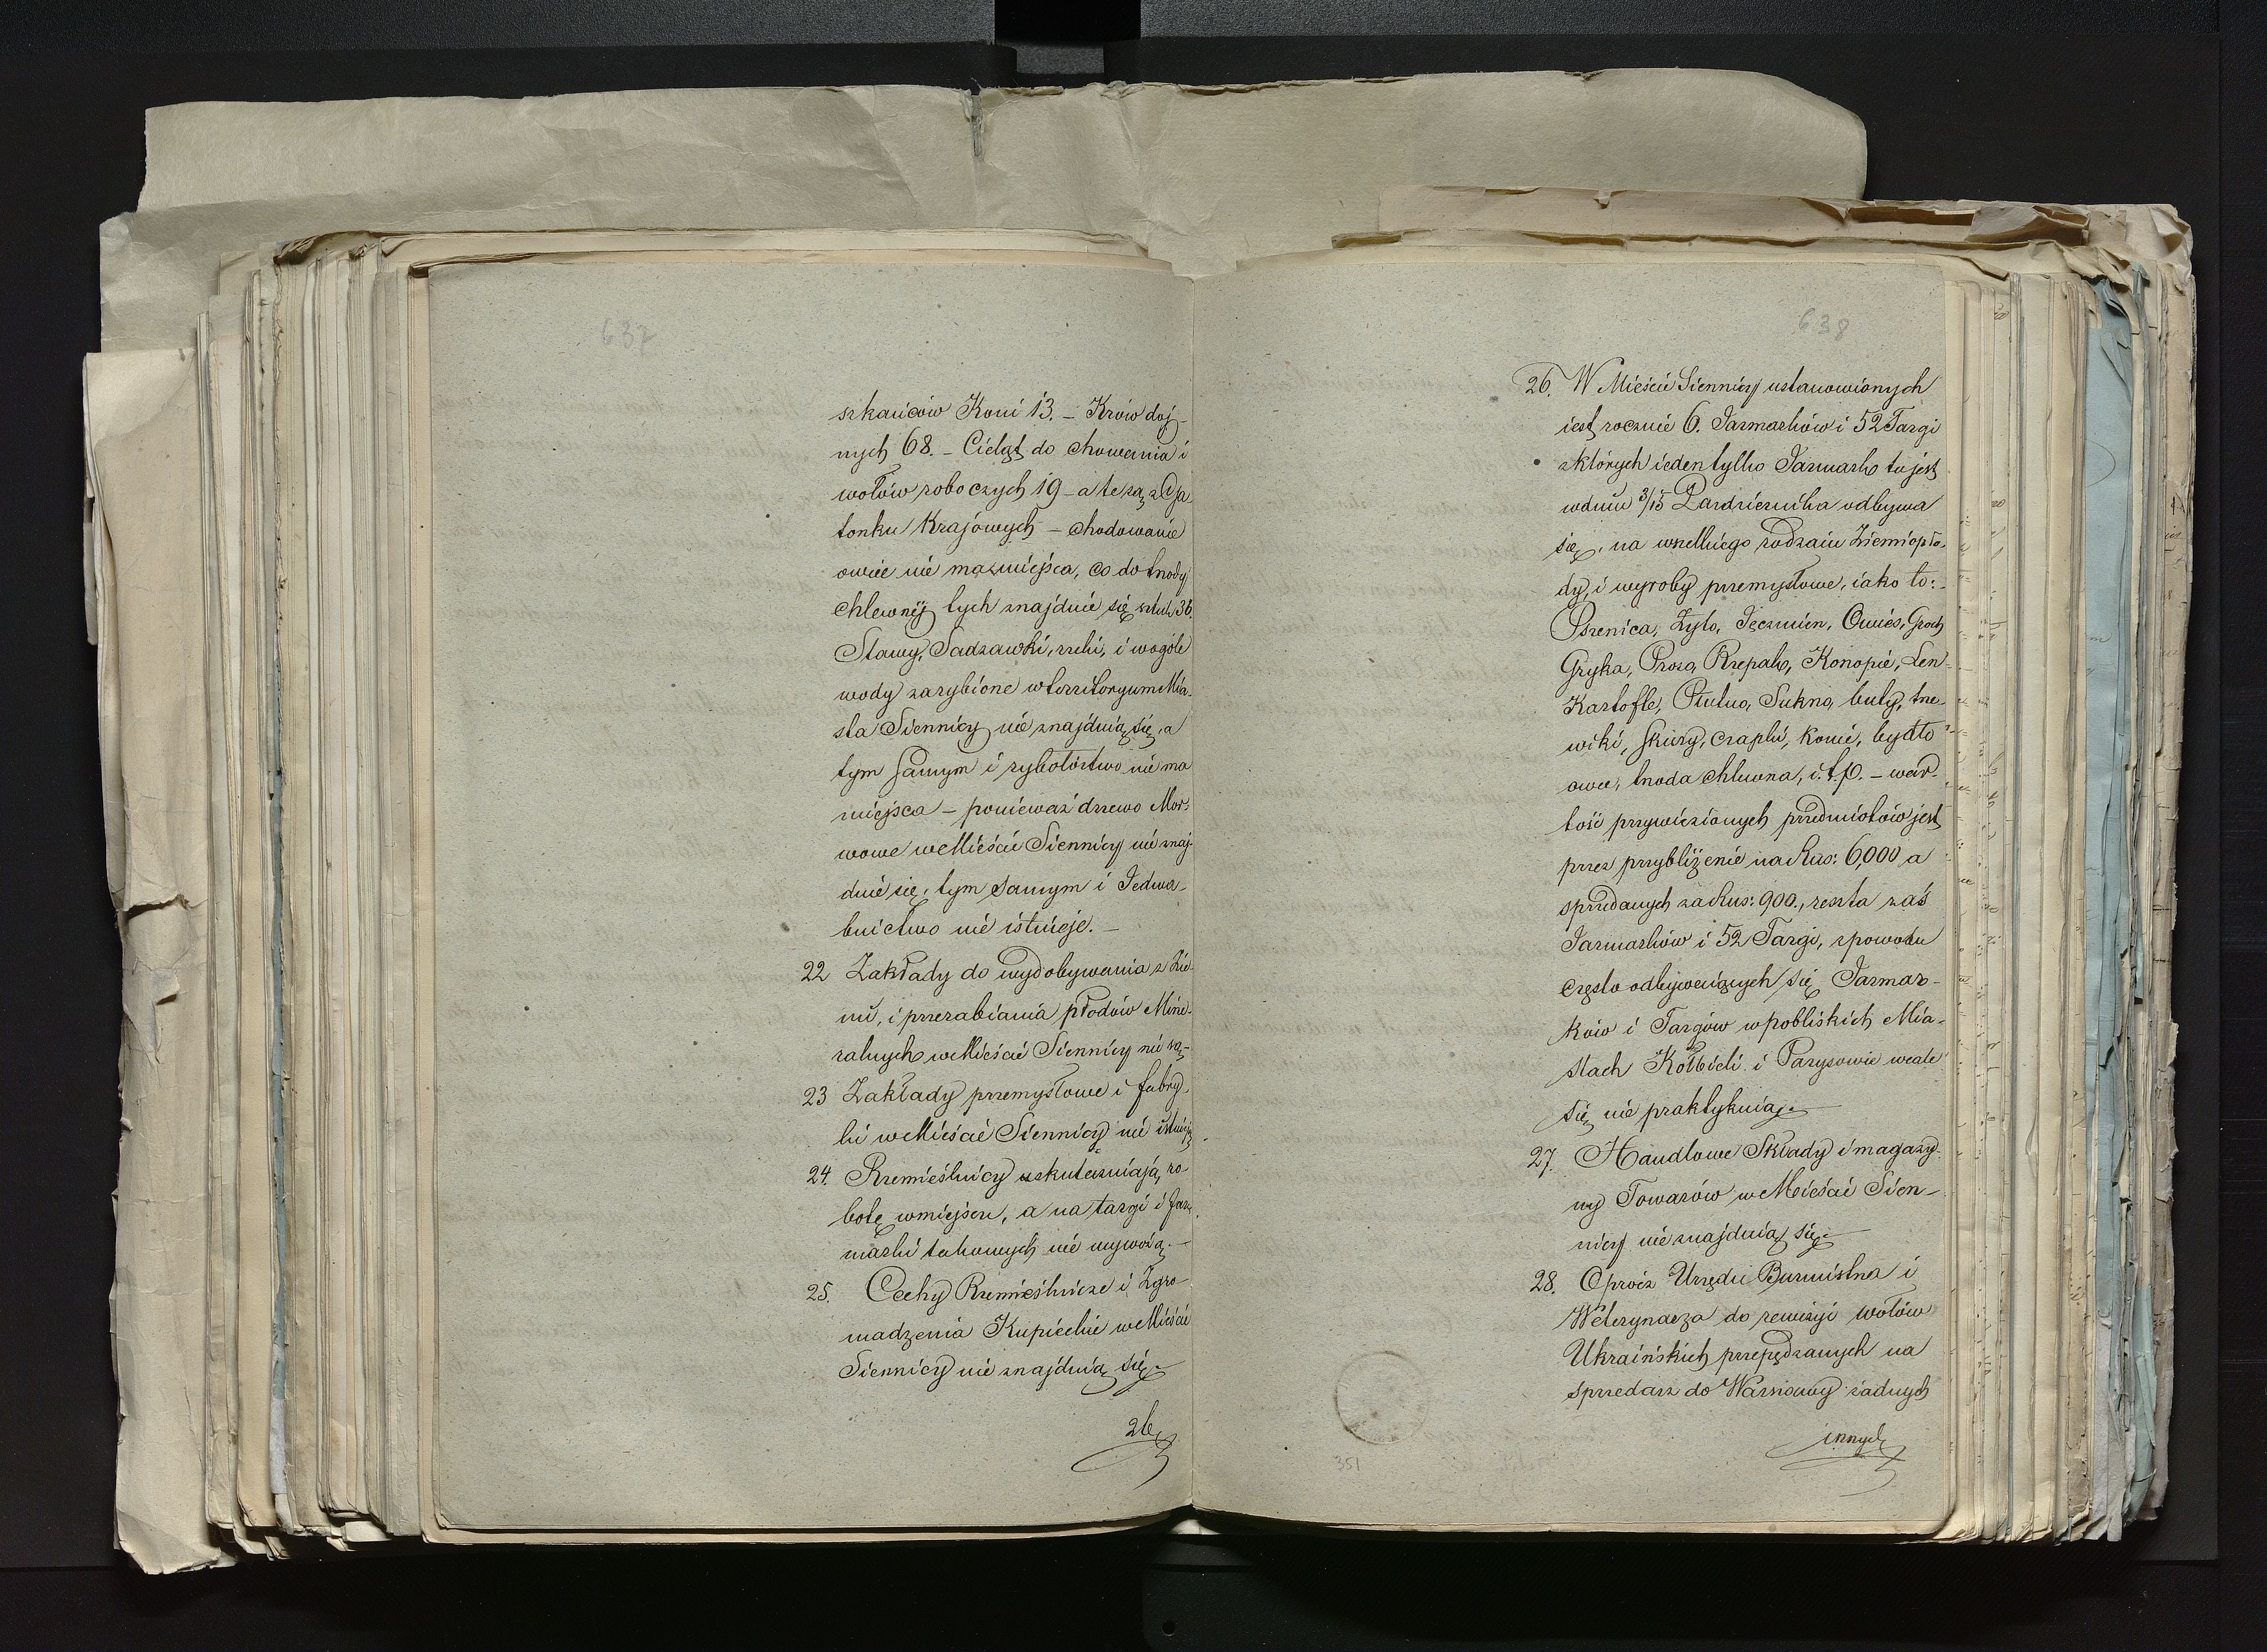 637
szkańców Koni 13. – Krów doj-
nych 68. – Cieląt do chowania i
wołów roboczych 19 – a te są z Ga-
tonku Krajowych – chodowanie
owiec nie ma miejsca, co do trzody
chlewnéj tych znajduie się sztuk 36.
Stawy, Sadzawki, rzeki, i wogóle
wody zarybione w territoryum Mia-
sta Siennicy nie znajduią się, a
tym samym i rybołóstwo nie ma
miejsca – ponieważ drzewo Mor-
wowe w Mieście Siennicy nie znaj-
duie się, tym samym i Jedwa-
bnictwo nie istnieje. –
22 Zakłady do wydobywania z Zie-
mi, i przerabiania płodów Mine-
ralnych w Mieście Siennicy nie są –
23 Zakłady przemysłowe i fabry-
ki w Mieście Siennicy nie istnieją
24. Rzemieślnicy uskuteczniają ro-
botę w miejscu, a na targi i Jar-
marki takowych nie wywożą. –
25. Cechy Rzemieślnicze i Zgro-
madzenia Kupieckie w Mieście
Siennicy nie znajduią się. –
26
638
26. W Mieście Siennicy ustanowionych
iest rocznie 6. Jarmarków i 52 Targi
z których ieden tylko Jarmark to jest
w dniu 3/15 Pazdziernika odbywa
się, na wszelkiego rodzaiu Ziemiopło-
dy, i wyroby przemysłowe, iako to: –
Pszenica, Żyto, Jęczmien, Owies, Groch
Gryka, Proso, Rzepak, Konopie, Len-
Kartofle, Płutno, Sukno, buty, trze-
wiki, skury, czapki, konie, bydło
owce, trzoda chlewna, i.t.p. – war-
tość przywiezionych przedmiotów jest
przez przybliżenie na Rus: 6,000 a
sprzedanych za Rus: 900., reszta zaś
Jarmarków i 52 Targi, z powodu
często odbywaiących się Jarmar-
ków i Targów w pobliskich Mia-
stach Kołbieli i Parysowie wcale
się nie praktykuią. –
27. Handlowe Składy i magazy-
ny Towarów w Mieście Sien-
nicy nie znajduią się. –
28. Oprócz Urzędu Burmistrza i
Weterynarza do rewizyi wołów
Ukraińskich przepędzanych na
sprzedarz do Warszawy żadnych
innych
351